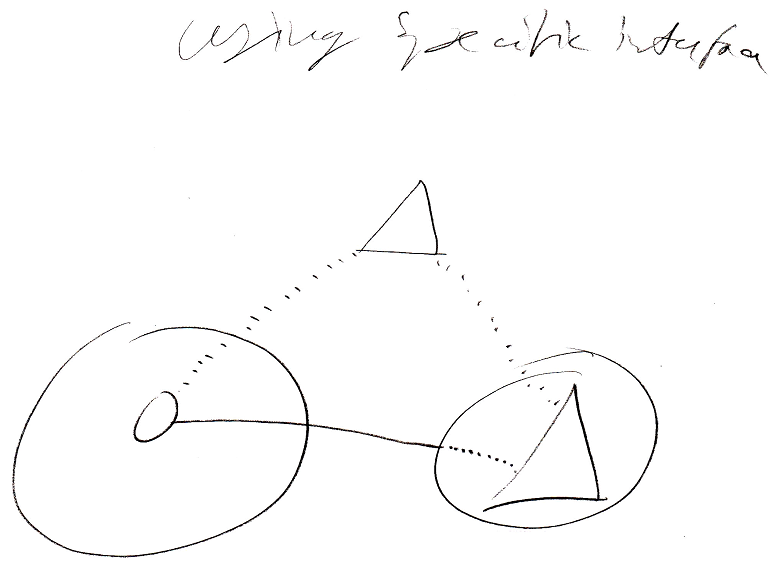 using specific interface